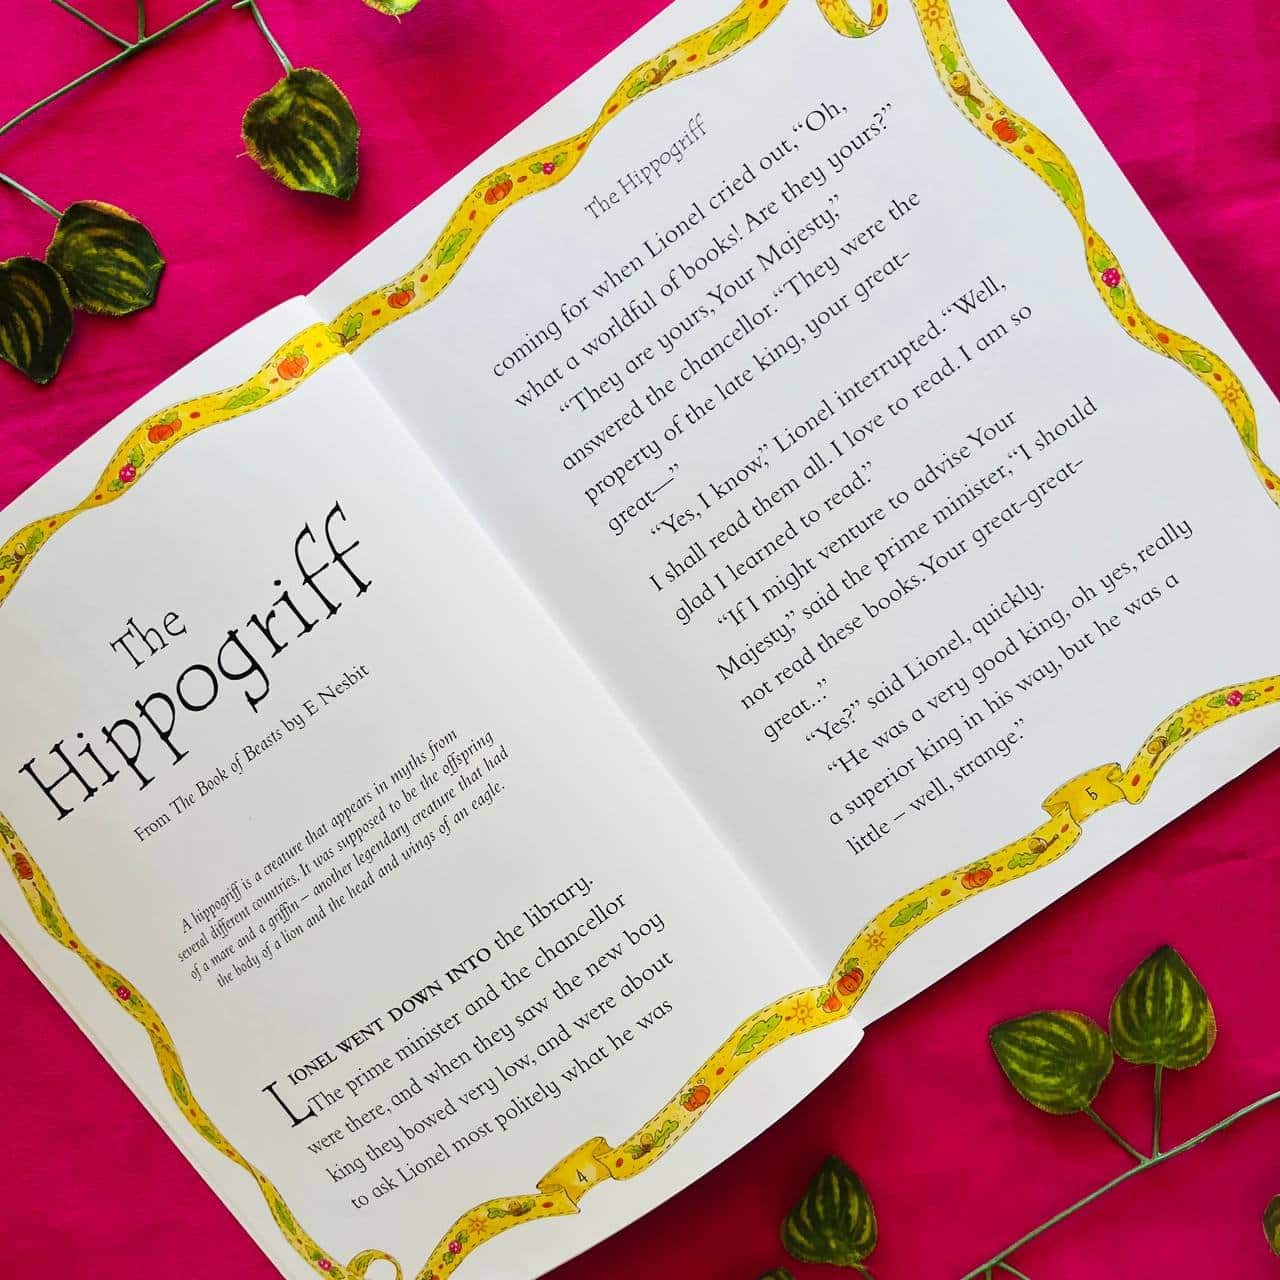 The
Hippogriff
From The Book of Beasts by E Nesbit
A hippogriff is a creature that appears in myths from
several different countries. It was supposed to be the offspring
of a mare and a griffin – another legendary creature that had
the body of a lion and the head and wings of an eagle.
LIONEL WENT DOWN INTO the library.
The prime minister and the chancellor
were there, and when they saw the new boy
king they bowed very low, and were about
to ask Lionel most politely what he was
4
The Hippogriff
coming for when Lionel cried out, “Oh,
what a worldful of books! Are they yours?”
“They are yours, Your Majesty,”
answered the chancellor. “They were the
property of the late king, your great-
great—”
“Yes, I know,” Lionel interrupted. “Well,
I shall read them all. I love to read. I am so
glad I learned to read.”
“If I might venture to advise Your
Majesty,” said the prime minister, “I should
not read these books. Your great-great-
great...”
“Yes?” said Lionel, quickly.
“He was a very good king, oh yes, really
a superior king in his way, but he was a
little – well, strange.”
5